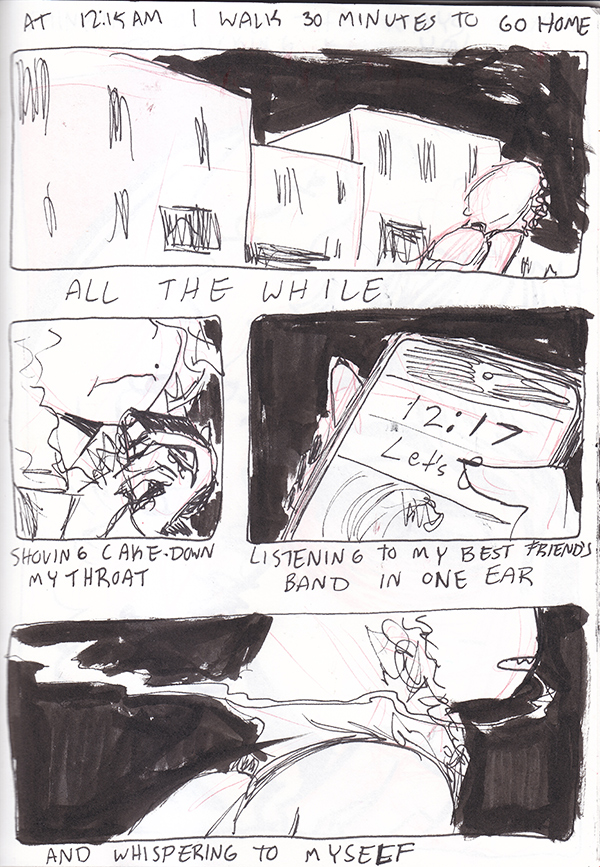 AT 12:15AM I WALK 30 MINUTES TO GO HOME
ALL THE WHILE
12:17
Let's
SHOVING CAKE DOWN
MY THROAT
LISTENING TO MY BEST FRIEND'S
BAND IN ONE EAR
AND WHISPERING TO MYSELF